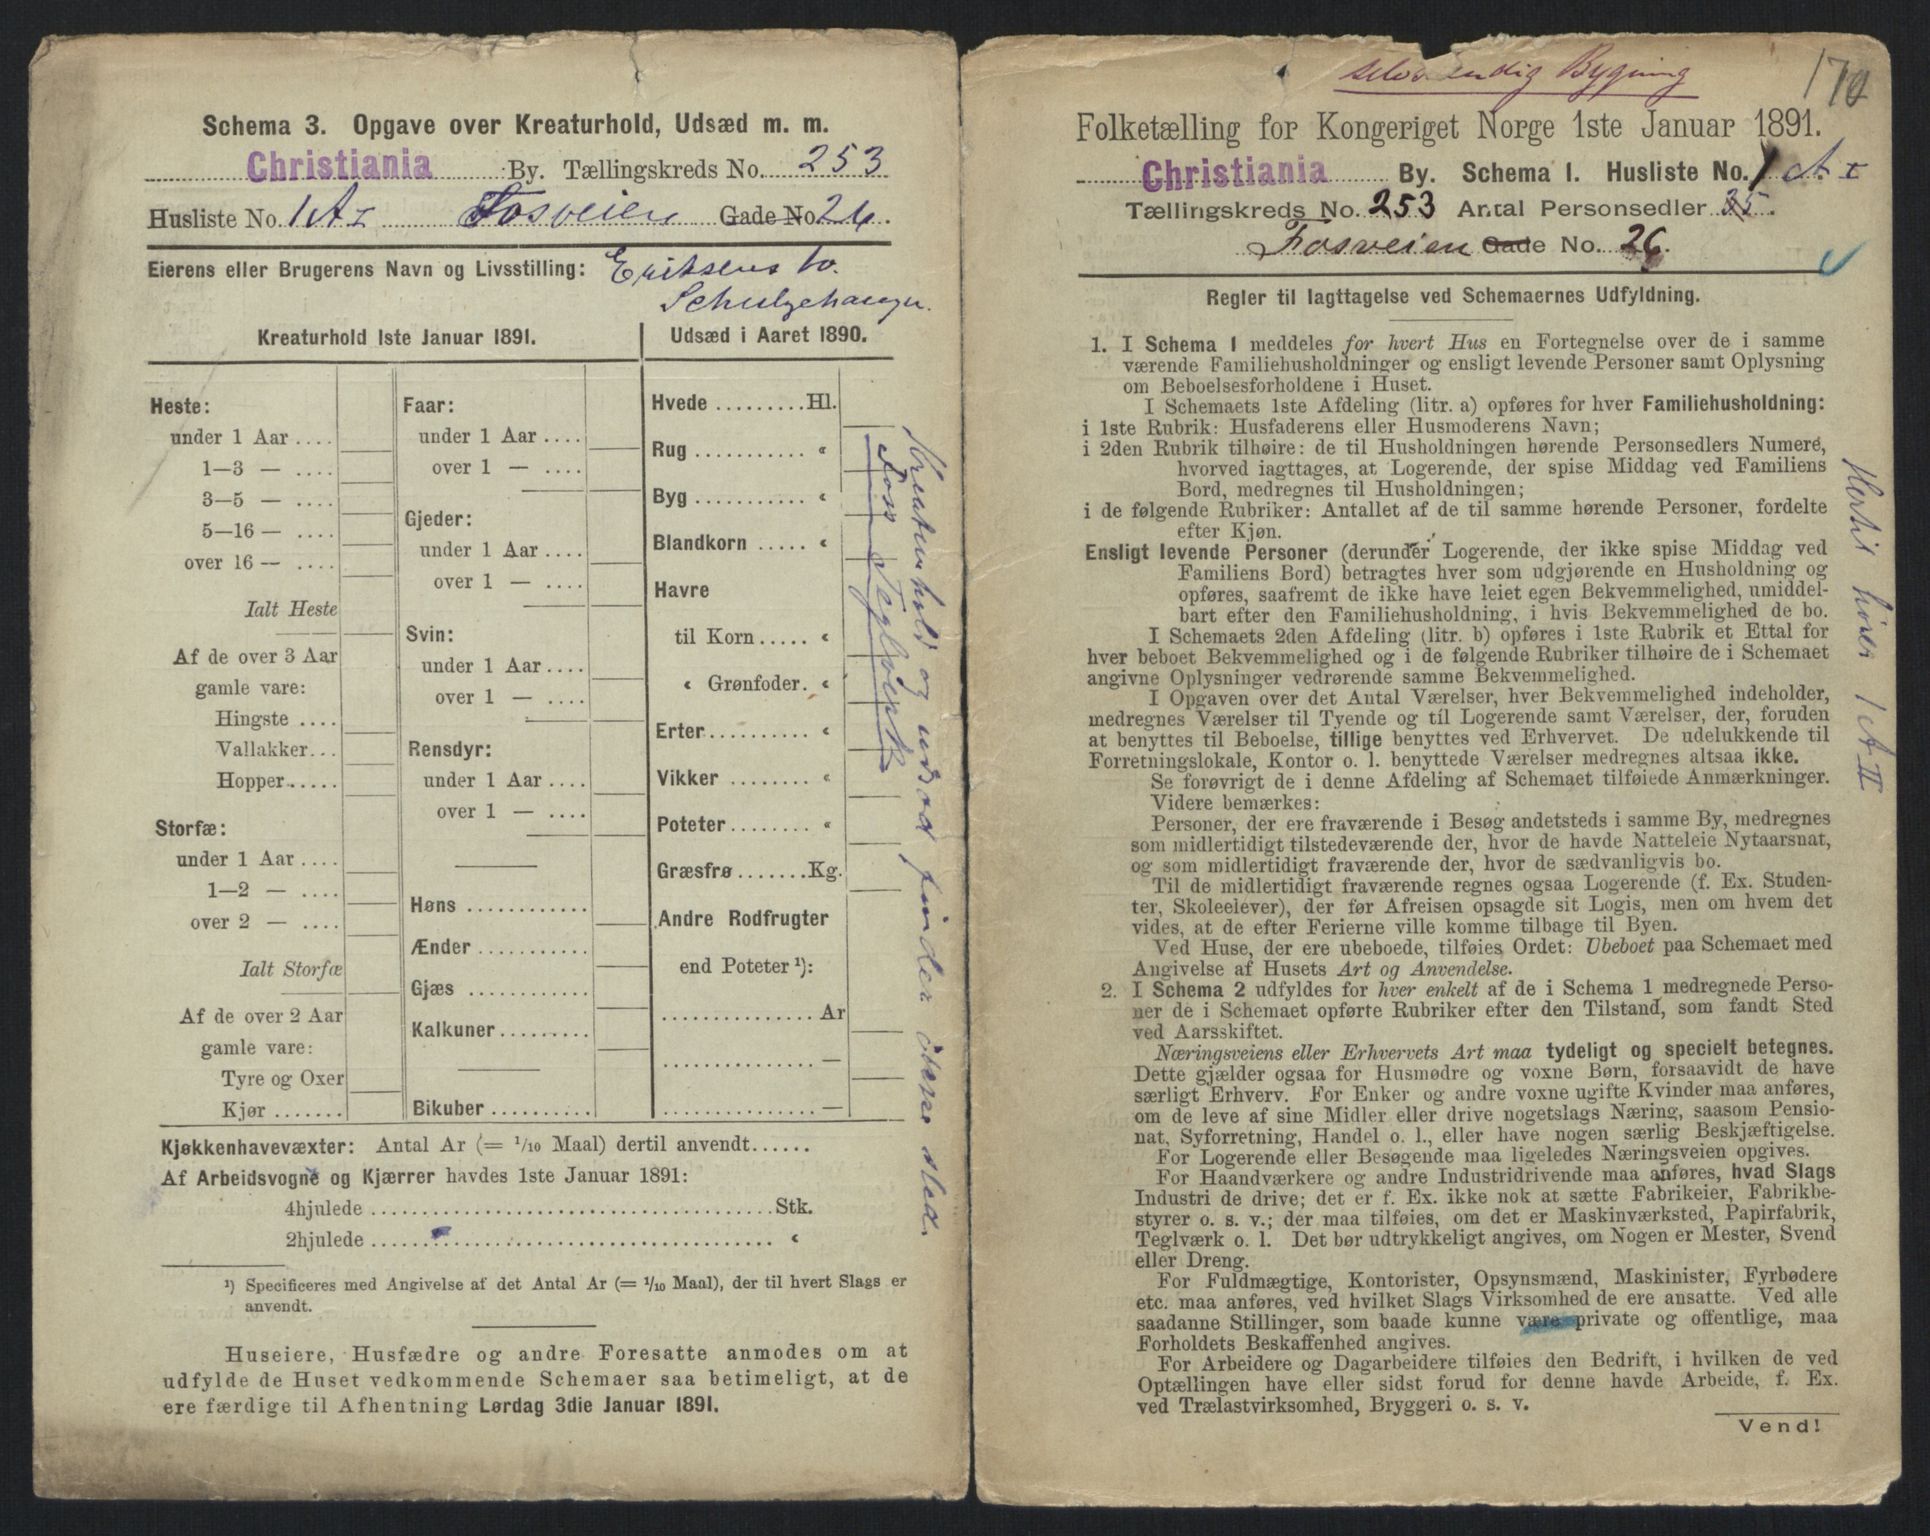 Schema 3. Opgave over Kreaturhold, Udsæd m. m.
Christiania By. Tællingskreds No. 253
Husliste No. 1 A I Fosveien Gade No 26.
Eierens eller Brugerens Navn og Livsstilling: Eriksens bo.
Kreaturhold 1ste Januar 1891.
Heste:
under 1 Aar ....
1—3 — ....
3—5 — ....
5—16 — ....
over 16 — ....
Ialt Heste
Af de over 3 Aar
gamle vare:
Hingste ....
Vallakker...
Hopper.....
Storfæ:
under 1 Aar ....
1—2 — ....
over 2 — ....
Ialt Storfæ
Af de over 2 Aar
gamle vare:
Tyre og Oxer
Kjør .......
Faar:
under 1 Aar ....
over 1 — ....
Gjeder:
under 1 Aar ....
over 1 — ....
Svin:
under 1 Aar ....
over 1 — ....
Rensdyr:
under 1 Aar ....
over 1 — ....
Høns ............
Ænder ...........
Gjæs ............
Kalkuner.........
Bikuber ..........
Udsæd i Aaret 1890.
Hvede .........Hl.
Rug ........... «
Byg ........... «
Blandkorn ..... «
Havre
til Korn..... «
« Grønfoder. «
Erter.......... «
Vikker ........ «
Poteter........ «
Græsfrø.......Kg.
Andre Rodfrugter
end Poteter ¹):
............... Ar
............... —
............... —
Kreaturhold og udsæd finder ikke sted.
Foss Teglverk
Kjøkkenhavevæxter: Antal Ar (= 1/10 Maal) dertil anvendt......
Af Arbeidsvogne og Kjærrer havdes 1ste Januar 1891:
4hjulede ........................................Stk.
2hjulede ........................................ «
¹) Specificeres med Angivelse af det Antal Ar (= 1/10 Maal), der til hvert Slags er
anvendt.
Huseiere, Husfædre og andre Foresatte anmodes om at
udfylde de Huset vedkommende Schemaer saa betimeligt, at de
ere færdige til Afhentning Lørdag 3die Januar 1891.
selvstændig Bygning
170
Folketælling for Kongeriget Norge 1ste Januar 1891.
Christiania By. Schema I. Husliste No. 1 A I
Tællingskreds No. 253 Antal Personsedler 35.
Fosveien Gade No. 26.
Regler til Iagttagelse ved Schemaernes Udfyldning.
1. I Schema 1 meddeles for hvert Hus en Fortegnelse over de i samme
værende Familiehusholdninger og ensligt levende Personer samt Oplysning
om Beboelsesforholdene i Huset.
I Schemaets 1ste Afdeling (litr. a) opføres for hver Familiehusholdning:
i 1ste Rubrik: Husfaderens eller Husmoderens Navn;
i 2den Rubrik tilhøire: de til Husholdningen hørende Personsedlers Numere,
hvorved iagttages, at Logerende, der spise Middag ved Familiens
Bord, medregnes til Husholdningen;
i de følgende Rubriker: Antallet af de til samme hørende Personer, fordelte
efter Kjøn.
Ensligt levende Personer (derunder Logerende, der ikke spise Middag ved
Familiens Bord) betragtes hver som udgjørende en Husholdning og
opføres, saafremt de ikke have leiet egen Bekvemmelighed, umiddel-
bart efter den Familiehusholdning, i hvis Bekvemmelighed de bo.
I Schemaets 2den Afdeling (litr. b) opføres i 1ste Rubrik et Ettal for
hver beboet Bekvemmelighed og i de følgende Rubriker tilhøire de i Schemaet
angivne Oplysninger vedrørende samme Bekvemmelighed.
I Opgaven over det Antal Værelser, hver Bekvemmelighed indeholder,
medregnes Værelser til Tyende og til Logerende samt Værelser, der, foruden
at benyttes til Beboelse, tillige benyttes ved Erhvervet. De udelukkende til
Forretningslokale, Kontor o. l. benyttede Værelser medregnes altsaa ikke.
Se forøvrigt de i denne Afdeling af Schemaet tilføiede Anmærkninger.
Videre bemærkes:
Personer, der ere fraværende i Besøg andetsteds i samme By, medregnes
som midlertidigt tilstedeværende der, hvor de havde Natteleie Nytaarsnat,
og som midlertidigt fraværende der, hvor de sædvanligvis bo.
Til de midlertidigt fraværende regnes ogsaa Logerende (f. Ex. Studen-
ter, Skoleelever), der før Afreisen opsagde sit Logis, men om hvem det
vides, at de efter Ferierne ville komme tilbage til Byen.
Ved Huse, der ere ubeboede, tilføies Ordet: Ubeboet paa Schemaet med
Angivelse af Husets Art og Anvendelse.
2. I Schema 2 udfyldes for hver enkelt af de i Schema 1 medregnede Perso-
ner de i Schemaet opførte Rubriker efter den Tilstand, som fandt Sted
ved Aarsskiftet.
Næringsveiens eller Erhvervets Art maa tydeligt og specielt betegnes.
Dette gjælder ogsaa for Husmødre og voxne Børn, forsaavidt de have
særligt Erhverv. For Enker og andre voxne ugifte Kvinder maa anføres,
om de leve af sine Midler eller drive nogetslags Næring, saasom Pensio-
nat, Syforretning, Handel o. l., eller have nogen særlig Beskjæftigelse.
For Logerende eller Besøgende maa ligeledes Næringsveien opgives.
For Haandværkere og andre Industridrivende maa anføres, hvad Slags
Industri de drive; det er f. Ex. ikke nok at sætte Fabrikeier, Fabrikbe-
styrer o. s. v.; der maa tilføies, om det er Maskinværksted, Papirfabrik,
Teglværk o. l. Det bør udtrykkeligt angives, om Nogen er Mester, Svend
eller Dreng.
For Fuldmægtige, Kontorister, Opsynsmænd, Maskinister, Fyrbødere
etc. maa anføres, ved hvilket Slags Virksomhed de ere ansatte. Ved alle
saadanne Stillinger, som baade kunne være private og offentlige, maa
Forholdets Beskaffenhed angives.
For Arbeidere og Dagarbeidere tilføies den Bedrift, i hvilken de ved
Optællingen have eller sidst forud for denne havde Arbeide, f. Ex.
ved Trælastvirksomhed, Bryggeri o. s. v.
Vend!
Hertil hører 1 A II